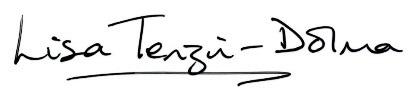 Lisa Tenzin-Dolma